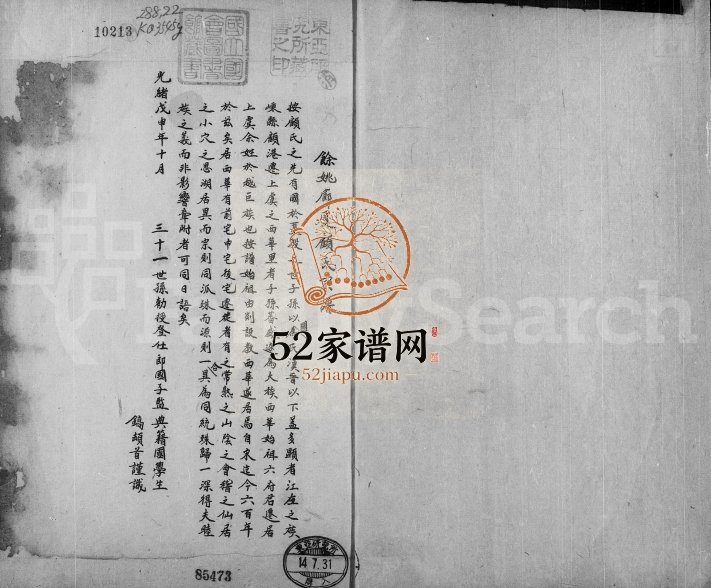 288.22
K03545g
10213
國立國會圖書館藏書
餘姚 顧氏
按顧氏之先有國於夏 世子孫以 晉以下蓋多顯者江左之族
嵊縣顧港遷上虞之西華里者子孫蕃 為大族西華始祖六府君遷居
上虞余姓於越巨族也按譜始祖由剡設教西華遂居焉自宋迄今六百年
於茲矣居西華有前宅中宅後宅遷徙者有之常熟之山陰之會稽之仙居
之小穴之思湖居異而宗則同派殊而源則一其為同統殊歸一深得夫睦
族之義而非影響牽附者可同日語矣
光緒戊申年十月 三十一世孫勅授登仕郎國子監典籍國學生
鎬頡首謹識
52家谱网
52jiapu.com
FamilySearch
14.7.31
85473